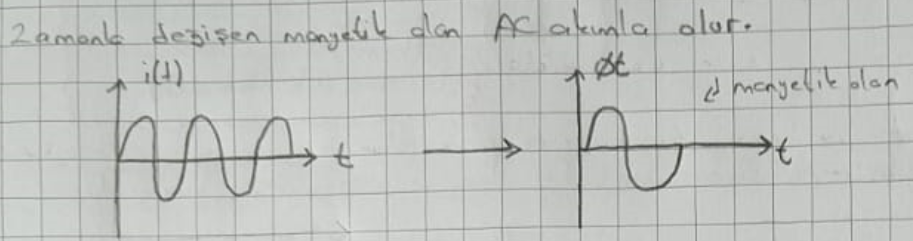 Zamanla değişen manyetik alan AC akımla olur.
i(t)
t
Øt
manyetik alan
t